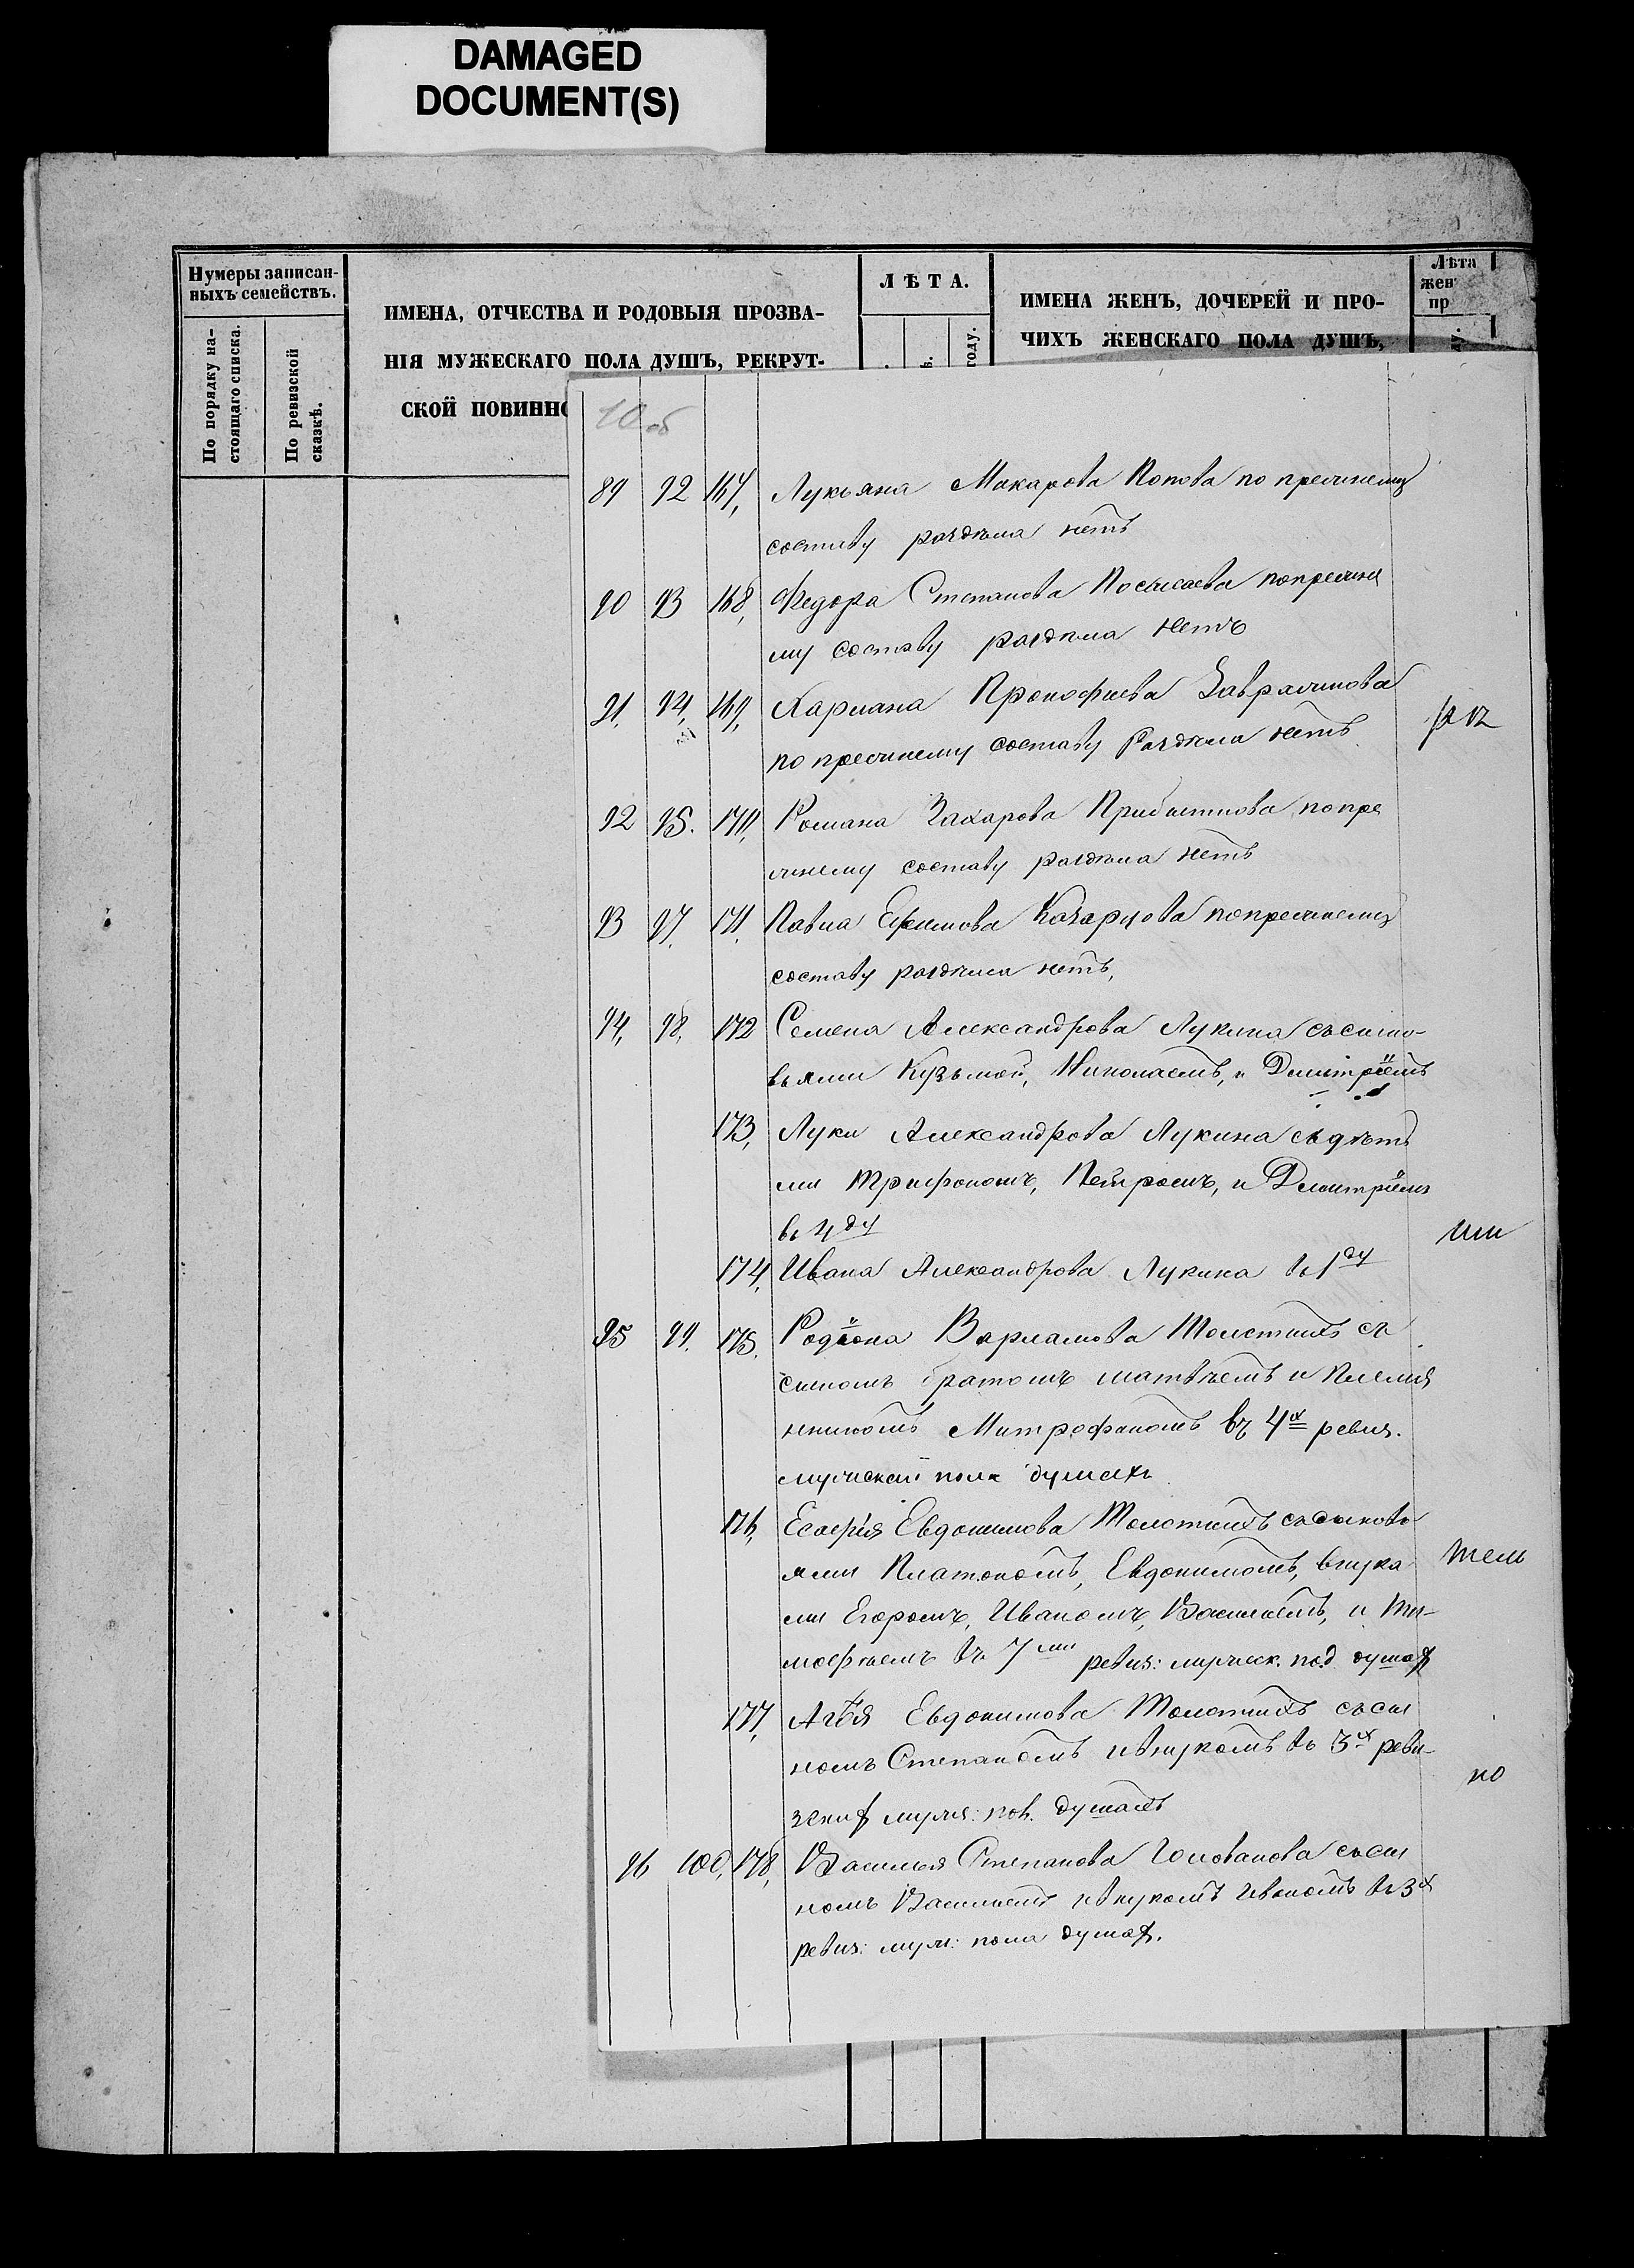 DAMAGED
DOCUMENT(S)
Нумеры записан-
ныхъ семействъ.
По порядку на-
стоящаго списка.
По ревизской
сказкѣ.
ИМЕНА, ОТЧЕСТВА И РОДОВЫЯ ПРОЗВА-
НІЯ МУЖЕСКАГО ПОЛА ДУШЪ, РЕКРУТ-
СКОЙ ПОВИННО
ЛѢТА.
году.
ИМЕНА ЖЕНЪ, ДОЧЕРЕЙ И ПРО-
ЧИХЪ ЖЕНСКАГО ПОЛА ДУШЪ,
Лѣта
жен
пр
10 об
89 92 167, Лукьяна Макарова Попова по прежнему
составу раздѣла нетъ
90 93 168, Федора Степанова попрежне
му составу раздѣла нетъ
91, 94, 169, Прокофьева
по прежнему составу раздѣла нетъ
92 95. 170, Романа Захарова Прибыткова, по пре
жнему составу раздѣла нетъ
93 97, 171, Павла Ефимова попрежнему
составу раздѣла нетъ,
94, 98, 172 Семена Александрова Лукина съ сыно-
вьями Кузьмой, Николаемъ, и Дмитріемъ
173, Луки Александрова Лукина съ дѣть
ми Трифономъ, Петромъ, и Дмитріемъ
въ 4 ду
174, Ивана Александрова Лукина въ 1 ду
95 99, 175, Родіона Варламова Толстыхъ съ
сыномъ братомъ Матвѣемъ и племя
нникомъ Митрофаномъ въ 4х ревиз.
мужеской пола душахъ
176, Евдокимова Толстыхъ съ сыновь
ями Платономъ, Евдокимомъ, внука
ми Егоромъ, Иваномъ, Васильемъ, и Ти-
мофѣемъ въ 7ми ревиз: мужеск. пол душах
177, Евдокимова Толстыхъ съ сы
номъ Степаномъ и внукомъ въ 3х реви-
зских мужс: пол. душахъ
96 100, 178, Василья Степанова Голованова съ сы
номъ Васильемъ и внукомъ Иваномъ въ 3х
ревиз: муж: пола душах.
ши
тель
но